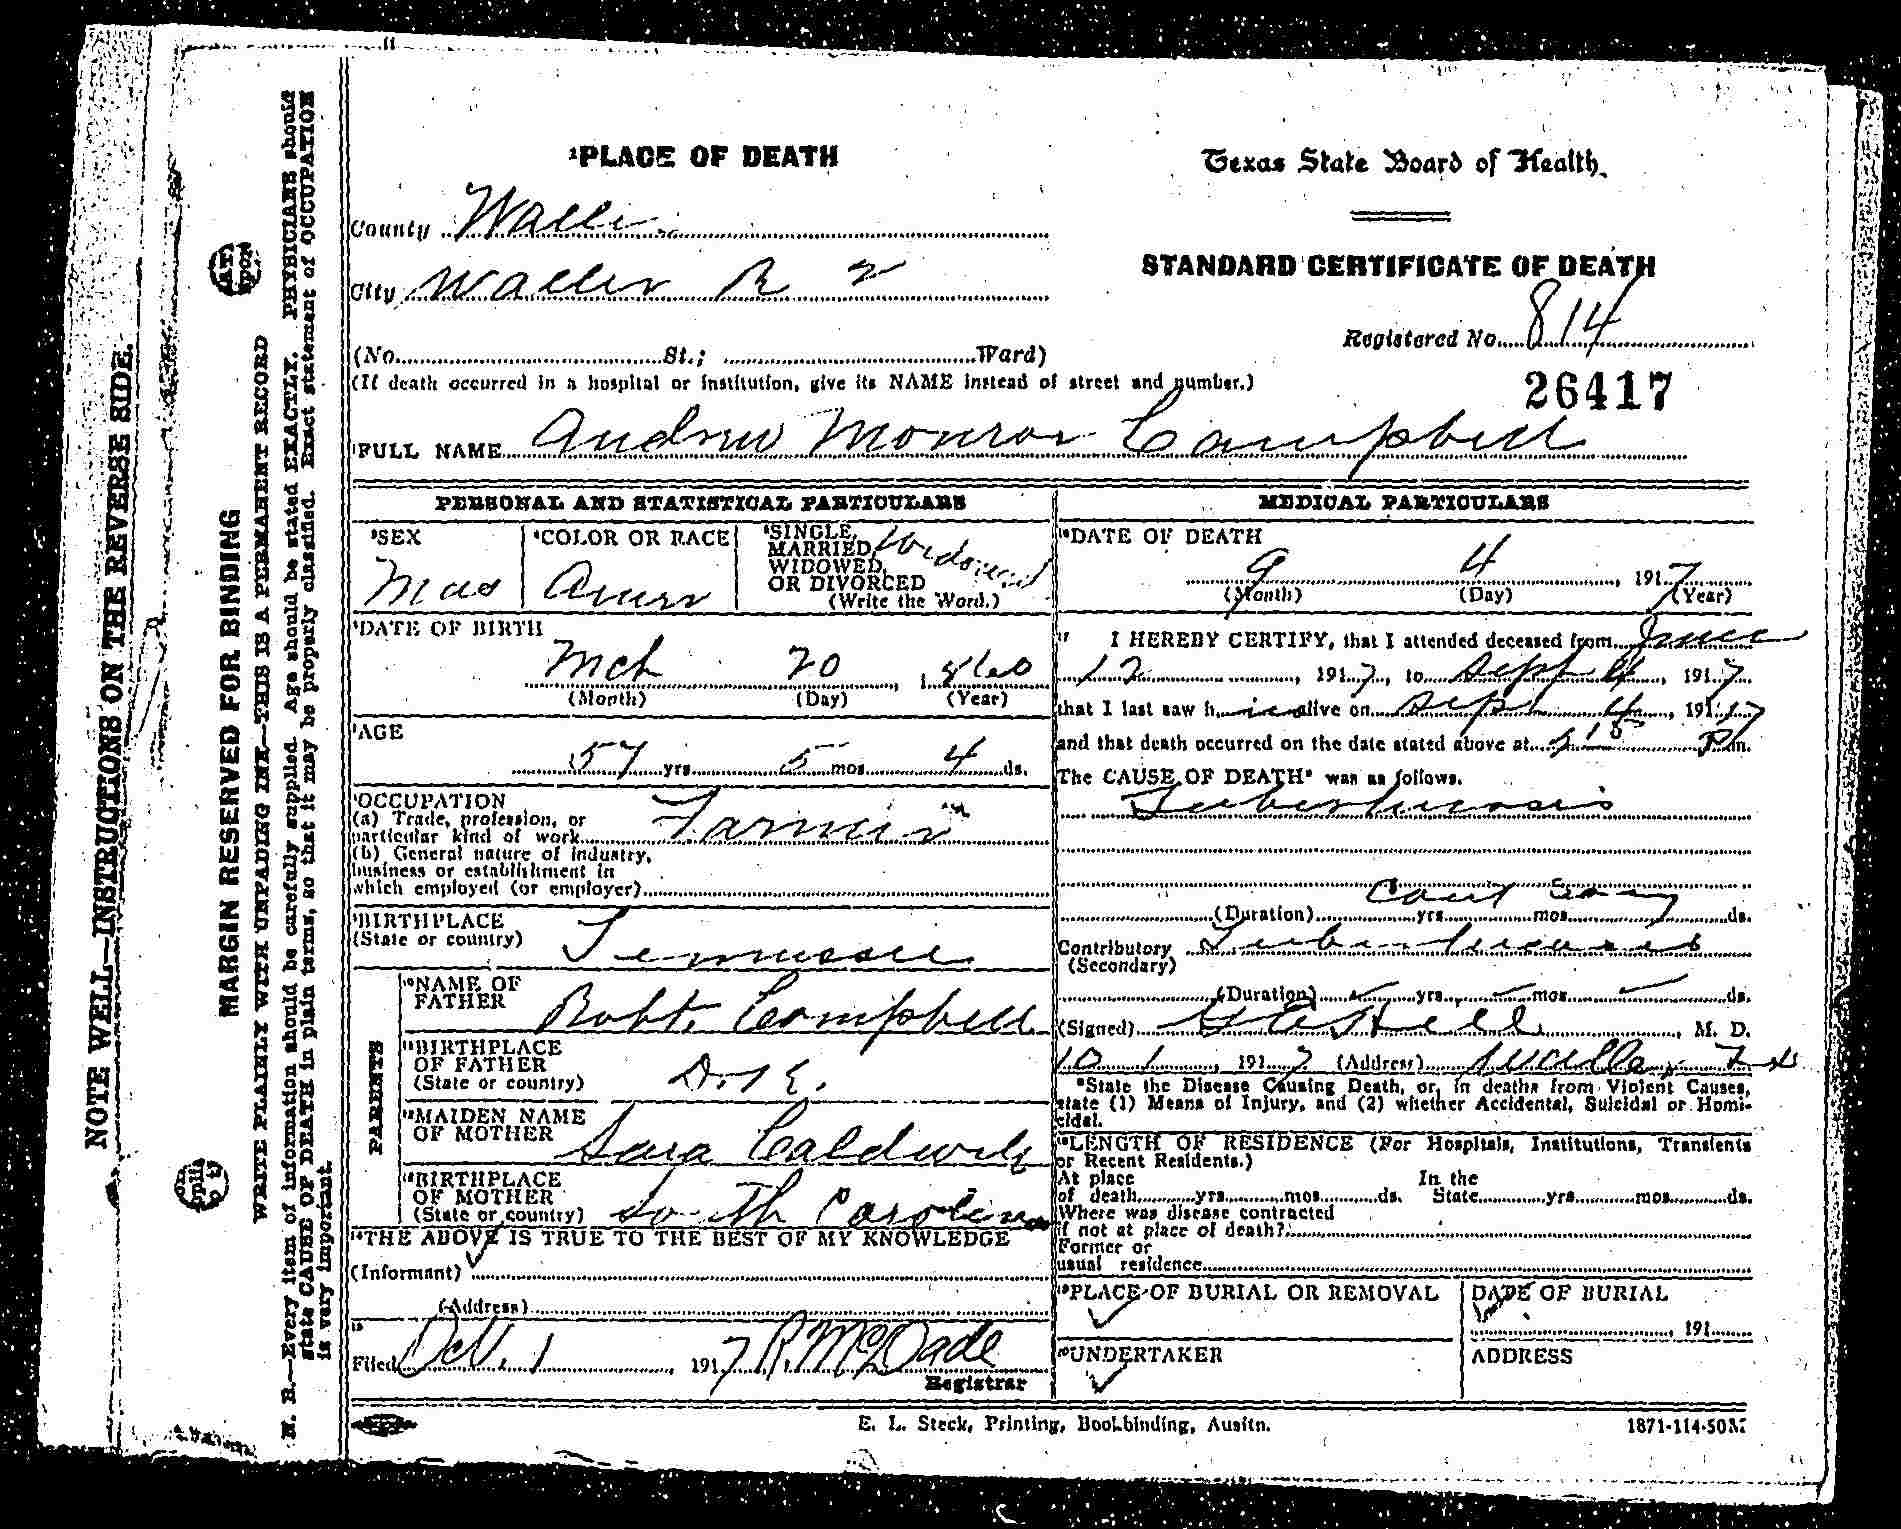 NOTE WELL—INSTRUCTIONS ON THE REVERSE SIDE.
MARGIN RESERVED FOR BINDING
WRITE PLAINLY WITH UNFADING INK—THIS IS A PERMANENT RECORD
N. B.—Every item of information should be carefully supplied. Age should be stated EXACTLY. PHYSICIANS should
state CAUSE OF DEATH in plain terms, so that it may be properly classified. Exact statement of OCCUPATION
is very important.
¹PLACE OF DEATH
County Waller
City Waller R 2
(No. St.; Ward)
(If death occurred in a hospital or institution, give its NAME instead of street and number.)
Texas State Board of Health.
STANDARD CERTIFICATE OF DEATH
Registered No. 814
26417
FULL NAME Andrew Monroe Campbell
PERSONAL AND STATISTICAL PARTICULARS
SEX
COLOR OR RACE
SINGLE,
MARRIED,
WIDOWED,
OR DIVORCED
(Write the Word.)
Widowed
DATE OF BIRTH
Mch 20, 1860
(Month) (Day) (Year)
AGE
57 yrs 5 mos 4 ds.
OCCUPATION
(a) Trade, profession, or
particular kind of work Farmer
(b) General nature of industry,
business or establishment in
which employed (or employer)
BIRTHPLACE
(State or country) Tennessee
PARENTS
NAME OF
FATHER Robt. Campbell
BIRTHPLACE
OF FATHER
(State or country)
MAIDEN NAME
OF MOTHER Sara Caldwell
BIRTHPLACE
OF MOTHER
(State or country) South Carolina
THE ABOVE IS TRUE TO THE BEST OF MY KNOWLEDGE
(Informant)
(Address)
Filed Oct. 1, 1917 R. McDade
Registrar
MEDICAL PARTICULARS
DATE OF DEATH
9 4, 1917
(Month) (Day) (Year)
I HEREBY CERTIFY, that I attended deceased from June
12, 1917, to Sept 4, 1917
that I last saw h alive on Sept 4, 1917
and that death occurred on the date stated above at Pm.
The CAUSE OF DEATH* was as follows.
Tuberculosis
(Duration) yrs mos ds.
Cant say
Contributory Tuberculosis
(Secondary)
(Duration) yrs mos ds.
(Signed), M. D.
10 1, 1917 (Address) Waller, Tex
*State the Disease Causing Death, or, in deaths from Violent Causes,
state (1) Means of Injury, and (2) whether Accidental, Suicidal or Homi-
cidal.
LENGTH OF RESIDENCE (For Hospitals, Institutions, Transients
or Recent Residents.)
At place In the
of death yrs mos ds. State yrs mos ds.
Where was disease contracted
if not at place of death?
Former or
usual residence
PLACE OF BURIAL OR REMOVAL
DATE OF BURIAL
, 191
UNDERTAKER
ADDRESS
E. L. Steck, Printing, Bookbinding, Ausitn.
1871-114-50M